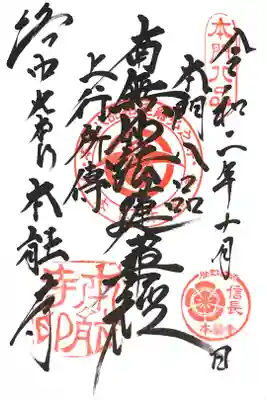 本門八品
令和二年十月 日
信長
本能寺
本門八品
南無妙法蓮華経
上行所傳
大本山 本能寺
本能寺印